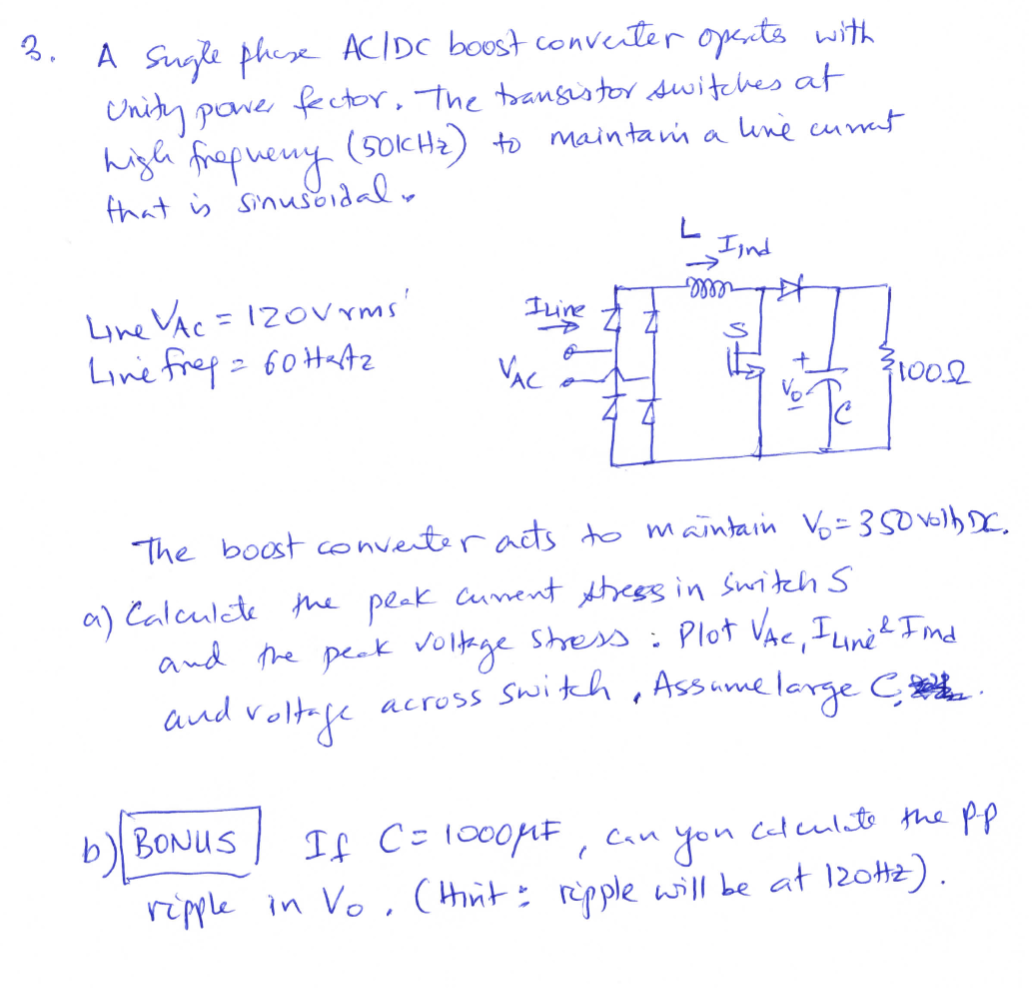 3. A Single phase AC/DC boost converter operates with
Unity power factor. The transistor switches at
high frequency (50kHz) to maintain a line current
that is sinusoidal.
L
Iind
Line VAC = 120V rms
Line freq = 60 Hertz
ILine
VAC
S
+
Vo
-
C
100Ω
The boost converter acts to maintain Vo = 350 volts DC.
a) Calculate the peak current stress in switch S
and the peak voltage stress : Plot VAC, ILine & Iind
and voltage across switch, Assume large C,
b) BONUS If C = 1000μF, can you calculate the pp
ripple in Vo. (Hint: ripple will be at 120Hz).